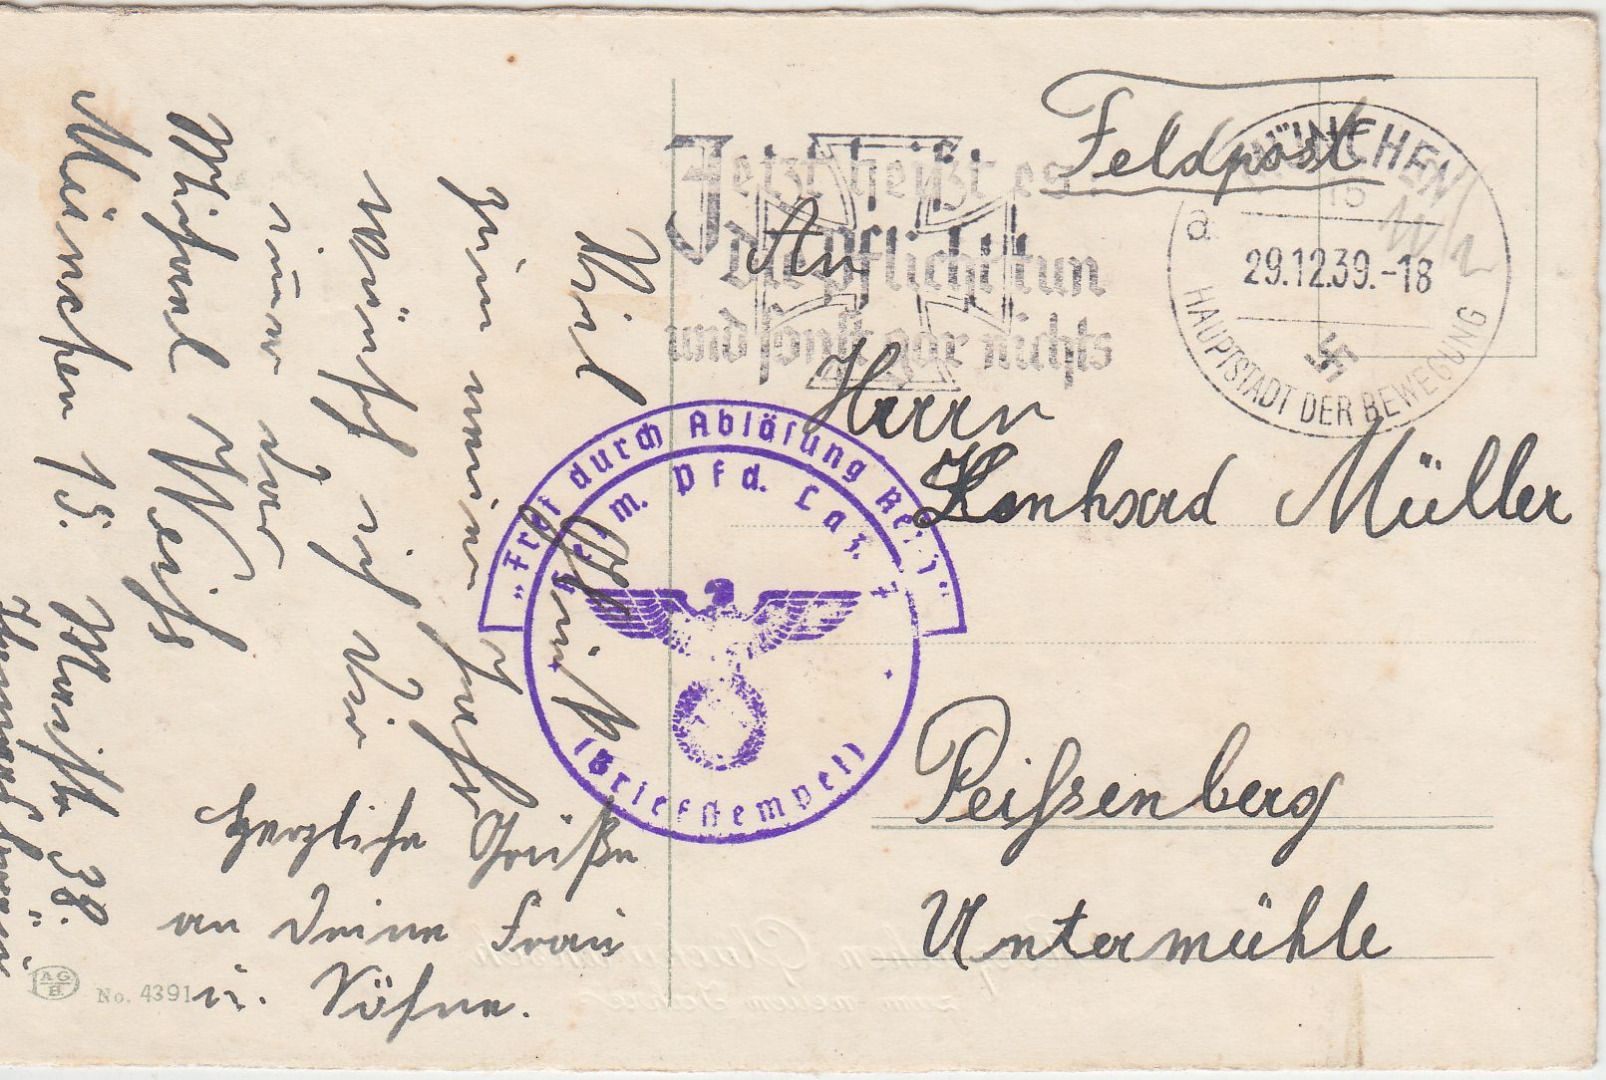 Viel Glück
zum neuen Jahre
Wünscht euch dir
immer der
Michael Weiß
München 15.
38.
Herzliche Grüße
an Deine Frau
u. Söhne.
AG
B.
No. 4391
Jetzt heißt es
Die Pflicht tun
und sonst gar nichts
MÜNCHEN
15
a
29.12.39.-18
HAUPTSTADT DER BEWEGUNG
Feldpost
An
Herrn
Konhrad Müller
Peißenberg
Untermühle
"Frei durch Ablösung Reich"
m. Pfd. Laz.
(Briefstempel)